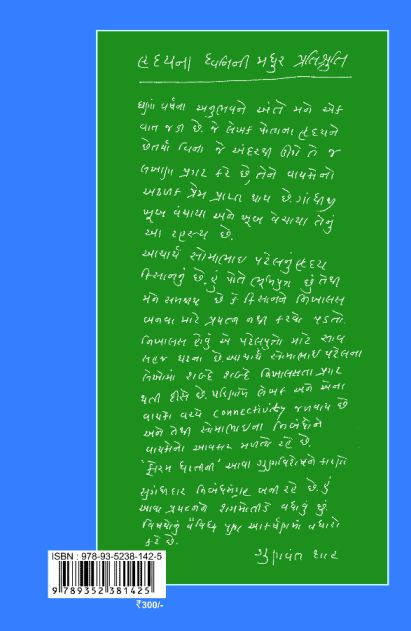 હૃદયના ધ્વનિની મધુર પ્રતિશ્રુતિ
ઘણાં વર્ષના અનુભવને અંતે મને એક
વાત જડી છે. જે લેખક પોતાના હૃદયને
છેતર્યા વિના જે અંદરથી ઊગે તે જ
લખાણ પ્રગટ કરે છે, તેને વાચકોનો
અઢળક પ્રેમ પ્રાપ્ત થાય છે. ગાંધીજી
ખૂબ વંચાયા અને ખૂબ વેચાયા તેનું
આ રહસ્ય છે.
આચાર્ય સોમાભાઇ પટેલનું હૃદય
કિસાનનું છે. હું પોતે ભૂમિપુત્ર છું તેથી
મને સમજાય છે કે કિસાનને નિખાલસ
બનવા માટે પ્રયત્ન નથી કરવો પડતો.
નિખાલસ હોવું એ પટેલપુત્રો માટે સાવ
સહજ ઘટના છે. આચાર્ય સોમાભાઇ પટેલના
લેખોમાં શબ્દે શબ્દે નિખાલસતા પ્રગટ
થતી દીસે છે. પરિણામે લેખક અને એના
વાચક વચ્ચે connectivity જળવાય છે
અને તેથી સોમાભાઇના નિબંધોને
વાચકોનો આવકાર મળતો રહે છે.
'ફોરમ ધરતીની' આવા ગુણવિશેષને કારણે
સુગંધીદાર નિબંધસંગ્રહ બની રહે છે. હું
આવા પ્રયત્નને શગમોતીડે વધાવું છું.
વિષયોનું વૈવિધ્ય પણ આકર્ષણમાં વધારો
કરે છે.
ગુણવંત શાહ
ISBN : 978-93-5238-142-5
9 789352 381425
₹300/-